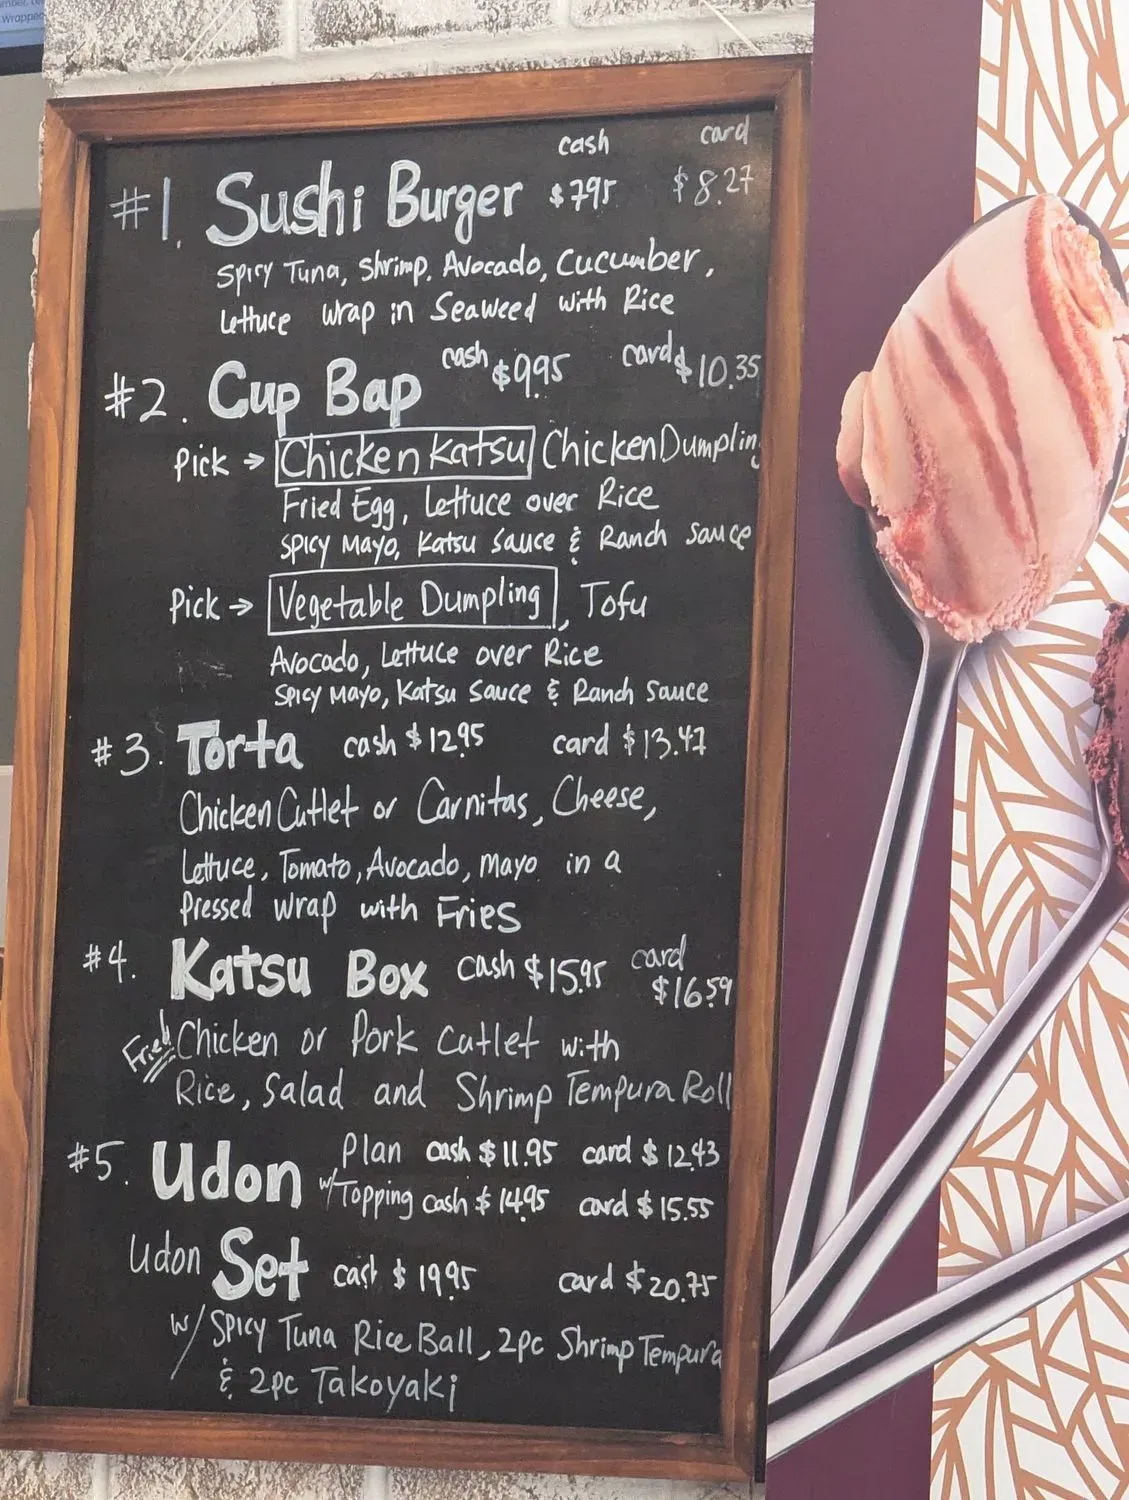 Wrapped
cash card
#1. Sushi Burger $7.95 $8.27
Spicy Tuna, Shrimp, Avocado, Cucumber,
Lettuce wrap in Seaweed with Rice
#2. Cup Bap cash $9.95 card $10.35
Pick → Chicken Katsu Chicken Dumpling
Fried Egg, Lettuce over Rice
Spicy Mayo, Katsu Sauce & Ranch Sauce
Pick → Vegetable Dumpling, Tofu
Avocado, Lettuce over Rice
Spicy Mayo, Katsu Sauce & Ranch Sauce
#3. Torta cash $12.95 card $13.47
Chicken Cutlet or Carnitas, Cheese,
Lettuce, Tomato, Avocado, Mayo in a
Pressed wrap with Fries
#4. Katsu Box cash $15.95 card $16.59
Fried Chicken or Pork Cutlet with
Rice, Salad and Shrimp Tempura Roll
#5. Udon Plan cash $11.95 card $12.43
w/Topping cash $14.95 card $15.55
Udon Set cash $19.95 card $20.75
w/ Spicy Tuna Rice Ball, 2pc Shrimp Tempura
& 2pc Takoyaki